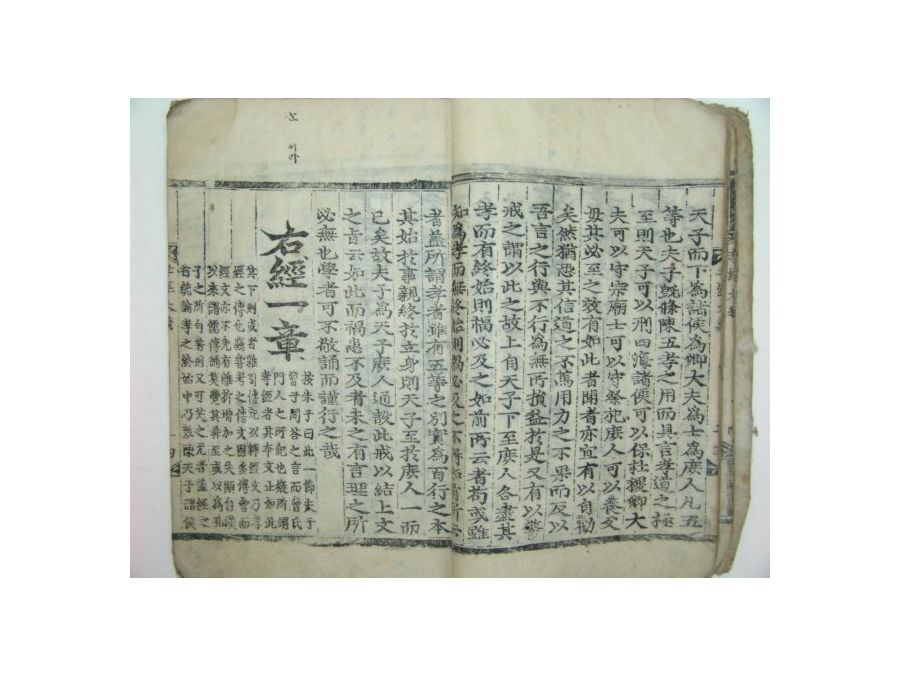 天子而下爲諸侯爲卿大夫爲士爲庶人凡五
等也夫子旣條陳五孝之用而具言孝道之極
至則天子可以刑四海諸侯可以保社稷卿大
夫可以守宗廟士可以守祭祀庶人可以養父
母其必至之效有如此者聞者亦宜有以自勸
矣然猶恐其信道之不篤用力之不果而反以
吾言之行與不行爲無所損益於是又有以警
戒之謂以此之故上自天子下至庶人各盡其
孝而有終始則福必及之如前所云者苟或雖
知爲孝而無終始則禍必及之不得如前所云
者盖所謂孝者雖有五等之別實爲百行之本
其始於事親終於立身則天子至於庶人一而
已矣故夫子爲天子庶人通設此戒以結上文
之旨云如此而禍患不及者未之有言理之所
必無也學者可不敬誦而謹行之哉
右經一章
按朱子曰此一節夫子
曾子問答之言而曾氏
門人之所記也疑所謂
孝經者其本文止如此
其下則或者雜引傳記以釋經文乃孝
經之傳也竊嘗考之傳文固多傅會而
經文亦不免有離析增加之失顧自漢
以來諸儒傳誦莫覺其非至或以爲孔
子之所自著則又可笑之尤者盖經之
首統論孝之終始中乃敷陳天子諸侯
노
이라